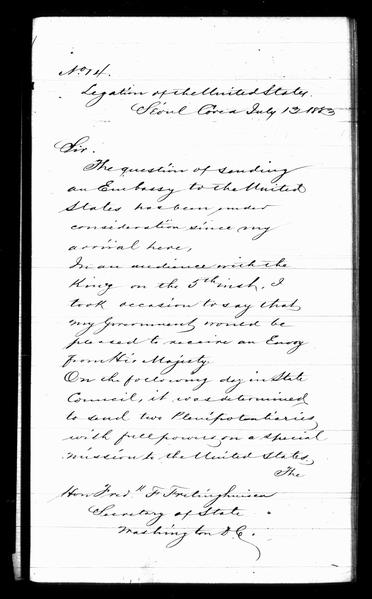 No 14.
Legation of the United States.
Séoul Corea July 13 1883
Sir.
The question of sending
an Embassy to the United
States has been under
consideration since my
arrival here,
In an audience with the
King on the 5th inst. I
took occasion to say that
my Government would be
pleased to receive an Envoy
from His Majesty.
On the following day in State
Council, it was determined
to send two Plenipotentiaries
with full powers on a special
mission to the United States
The
Hon Fred k F Frelinghuisen
Secretary of State
Washington D.C.